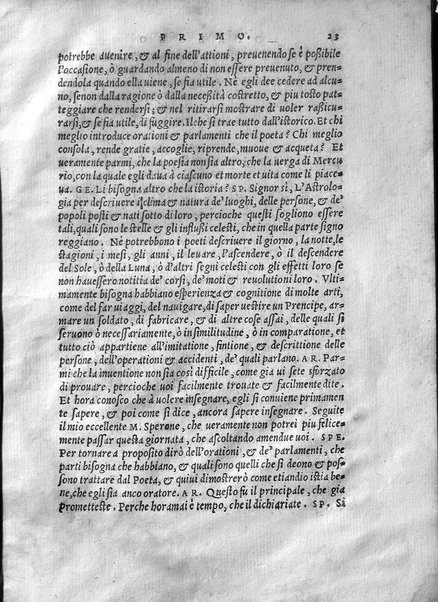 PRIMO. 23
potrebbe auenire, & al fine dell'attioni, preuenendo se è poßibile
l'occasione, ò guardando almeno di non essere preuenuto, & pren-
dendola quando ella viene, se fia utile. Nè egli dee cedere ad alcu-
no, se non dalla ragione ò dalla necessità costretto, & piu tosto pat-
teggiare che rendersi, & nel ritirarsi mostrare di uoler raßicu-
rarsi, & se fia utile, di fuggire. Ilche si trae tutto dall'istorico. Et chi
meglio introduce orationi & parlamenti che il poeta? Chi meglio
consola, rende gratie, accoglie, riprende, muoue & acqueta? Et
ueramente parmi, che la poesia non sia altro, che la uerga di Mercu
rio, con la quale egli daua à ciascuno et morte et uita come li piace-
ua. GE. Li bisogna altro che la istoria? SP. Signor sì, L'Astrolo-
gia per descriuere il clima & natura de' luoghi, delle persone, & de'
popoli posti & nati sotto di loro, percioche questi sogliono essere
tali, quali sono le stelle & gli influßi celesti, che in quella parte signo
reggiano. Nè potrebbono i poeti descriuere il giorno, la notte, le
stagioni, i mesi, gli anni, il leuare, l'ascendere, ò il descendere
del Sole, ò della Luna, ò d'altri segni celesti con gli effetti loro se
non hauessero notitia de' corsi, de' moti & reuolutioni loro. Vlti-
mamente bisogna habbiano esperienza & cognitione di molte arti,
come del far uiaggi, del nauigare, di saper uestire un Prencipe, ar-
mare un soldato, di fabricare, & di altre cose assai, delle quali si
seruono ò necessariamente, ò in similitudine, ò in comparatione, et
tutto ciò appartiene all'imitatione, fintione, & descrittione delle
persone, dell'operationi & accidenti, de' quali parlano. AR. Par-
mi che la inuentione non sia così difficile, come gia ui sete sforzato
di prouare, percioche uoi facilmente trouate & facilmente dite.
Et hora conosco che à uolere insegnare, egli si conuiene primamen
te sapere, & poi come si dice, ancora sapere insegnare. Seguite
il mio eccellente M. Sperone, che ueramente non potrei piu felice-
mente passar questa giornata, che ascoltando amendue uoi. SPE.
Per tornare a proposito dirò dell'orationi, & de' parlamenti, che
parti bisogna che habbiano, & quali sono quelli che si deono & pos-
sono trattare dal Poeta, & quiui dimostrerò come etiandio istia be
ne, che egli sia anco oratore. AR. Questo fu il principale, che gia
Prometteste. Perche horamai è tempo, che il dichiariate. SP. Si